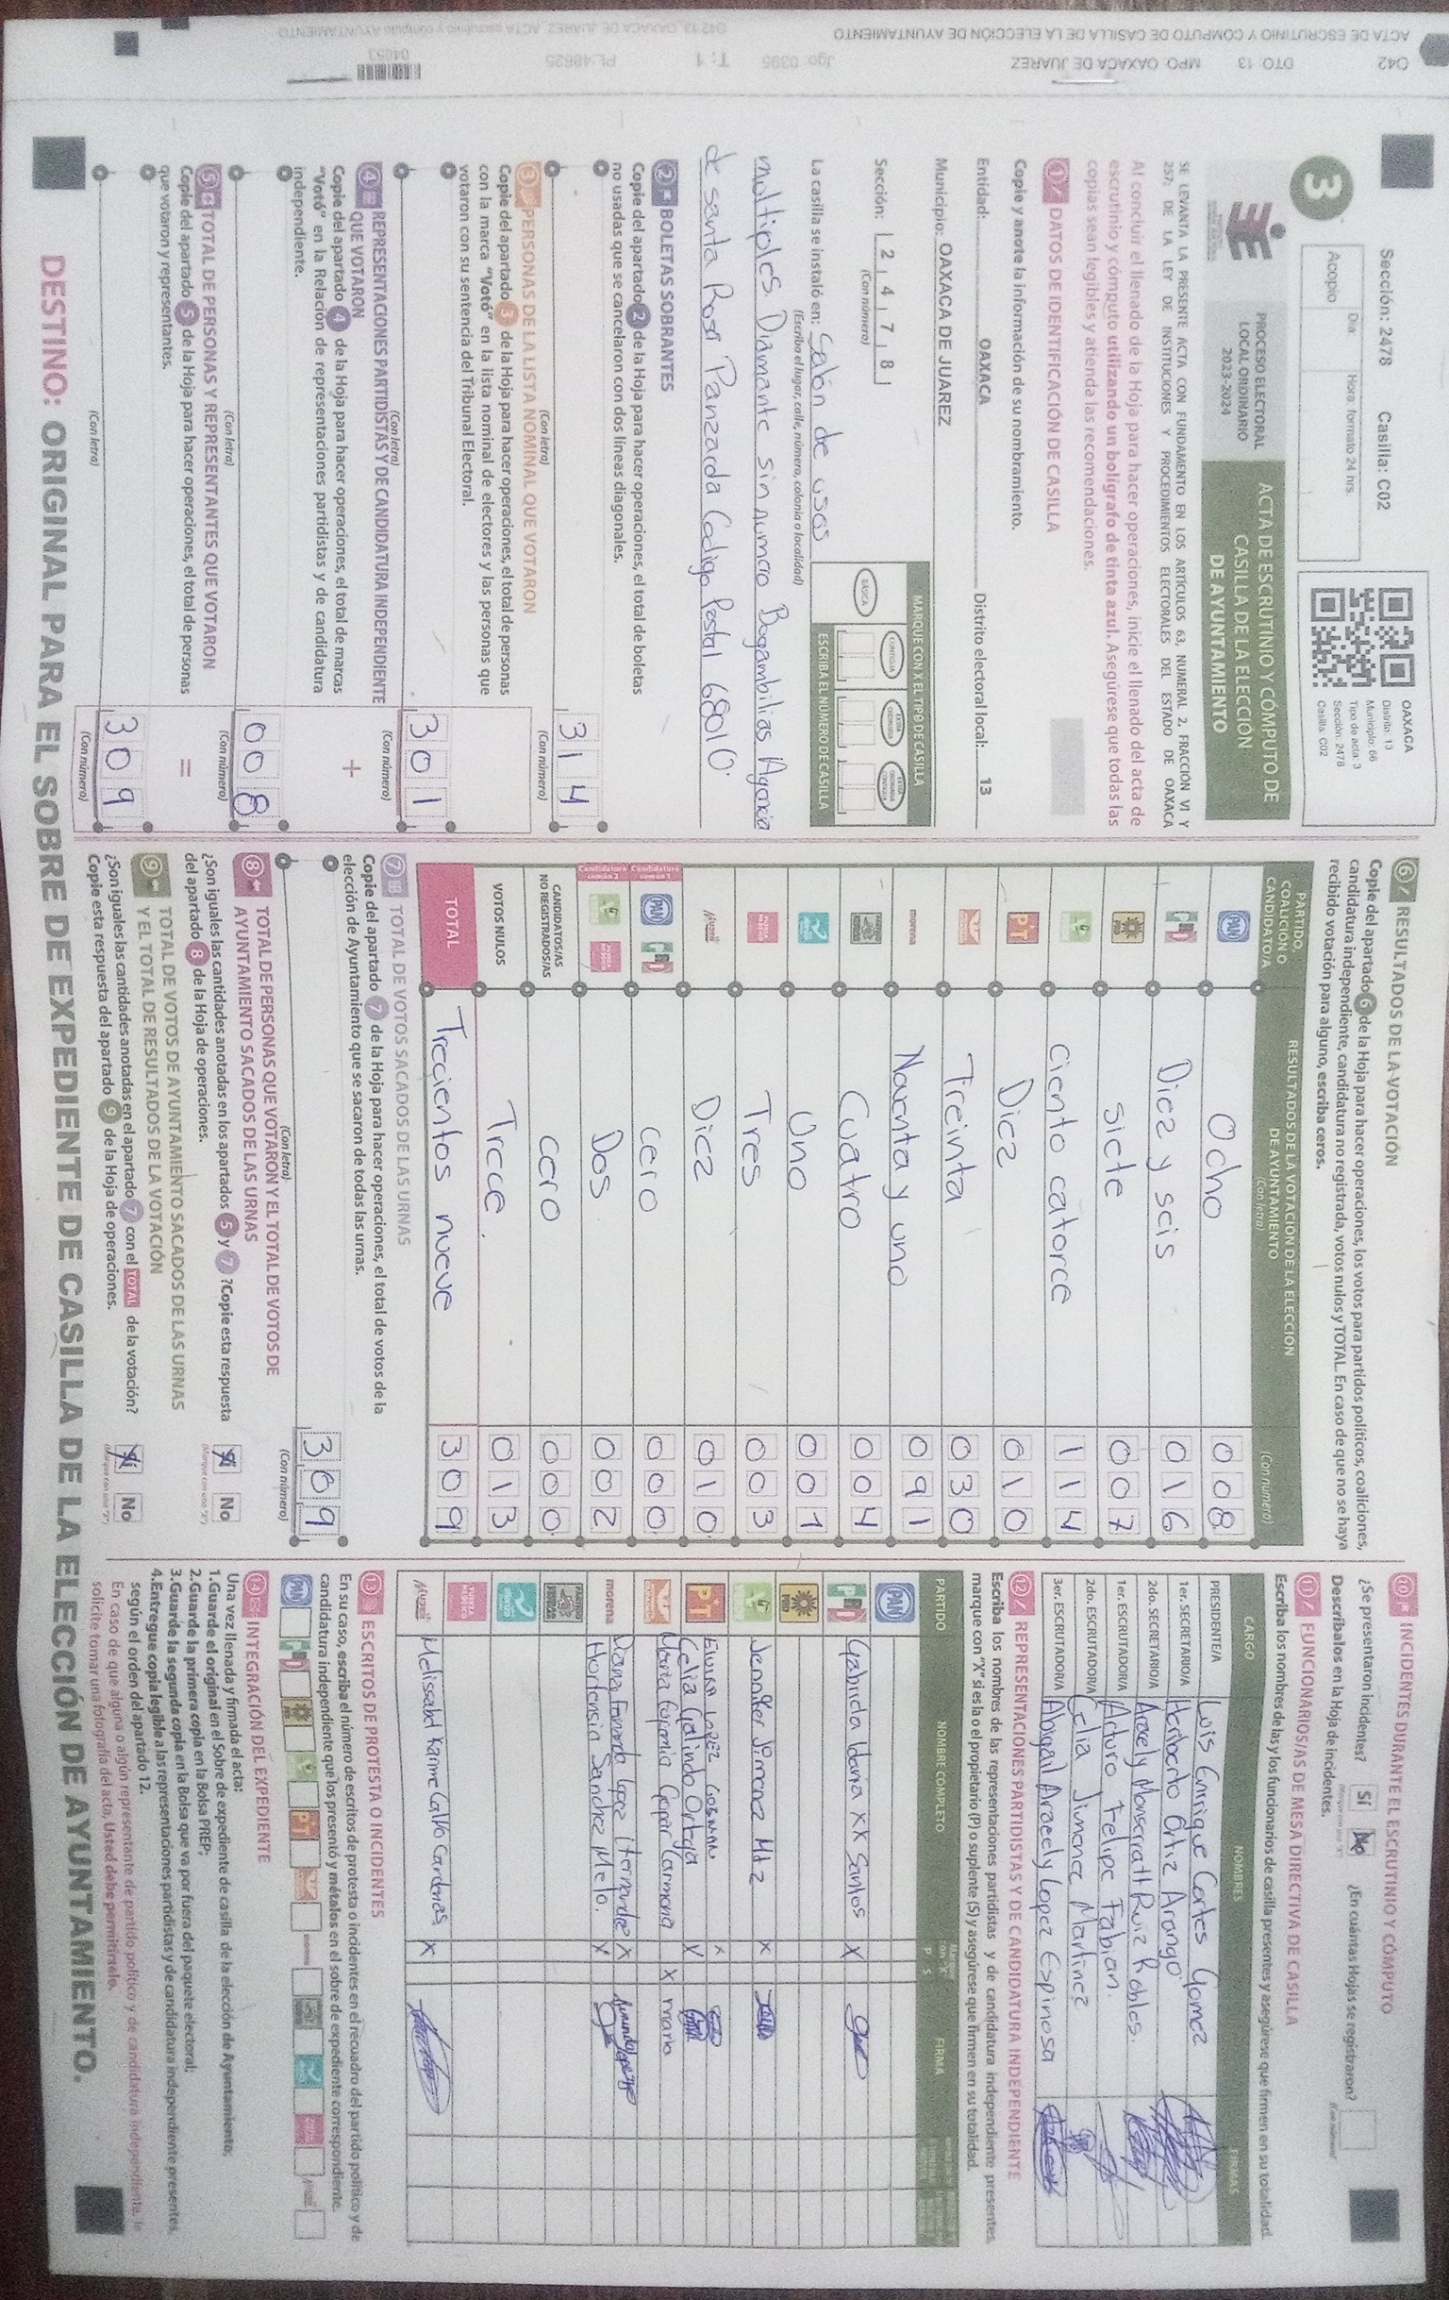 Sección: 2478 Casilla: C02
Día Hora: formato 24 hrs.
Acopio
3
OAXACA
Distrito: 13
Municipio: 66
Tipo de acta: 3
Sección: 2478
Casilla: C02
PROCESO ELECTORAL
LOCAL ORDINARIO
2023-2024
ACTA DE ESCRUTINIO Y CÓMPUTO DE
CASILLA DE LA ELECCIÓN
DE AYUNTAMIENTO
SE LEVANTA LA PRESENTE ACTA CON FUNDAMENTO EN LOS ARTÍCULOS 63, NUMERAL 2, FRACCIÓN VI Y
257; DE LA LEY DE INSTITUCIONES Y PROCEDIMIENTOS ELECTORALES DEL ESTADO DE OAXACA
Al concluir el llenado de la Hoja para hacer operaciones, inicie el llenado del acta de
escrutinio y cómputo utilizando un bolígrafo de tinta azul. Asegúrese que todas las
copias sean legibles y atienda las recomendaciones.
1 DATOS DE IDENTIFICACIÓN DE CASILLA
Copie y anote la información de su nombramiento.
Entidad: OAXACA Distrito electoral local: 13
Municipio: OAXACA DE JUAREZ
Sección: 2 4 7 8
(Con número)
MARQUE CON X EL TIPO DE CASILLA
BÁSICA CONTIGUA
ESCRIBA EL NÚMERO DE CASILLA
La casilla se instaló en: Salón de usos
(Escriba el lugar, calle, número, colonia o localidad)
multiples. Diamante sin numero Bogambilias Agencia
de santa Rosa Panzacola Codigo Postal 68010.
2 BOLETAS SOBRANTES
Copie del apartado 2 de la Hoja para hacer operaciones, el total de boletas
no usadas que se cancelaron con dos líneas diagonales.
314
(Con letra) (Con número)
3 PERSONAS DE LA LISTA NOMINAL QUE VOTARON
Copie del apartado 3 de la Hoja para hacer operaciones, el total de personas
con la marca "Votó" en la lista nominal de electores y las personas que
votaron con su sentencia del Tribunal Electoral.
301
(Con letra) (Con número)
4 REPRESENTACIONES PARTIDISTAS Y DE CANDIDATURA INDEPENDIENTE
QUE VOTARON
Copie del apartado 4 de la Hoja para hacer operaciones, el total de marcas
"Votó" en la Relación de representaciones partidistas y de candidatura
independiente.
+
008
(Con letra) (Con número)
5 TOTAL DE PERSONAS Y REPRESENTANTES QUE VOTARON
Copie del apartado 5 de la Hoja para hacer operaciones, el total de personas
que votaron y representantes.
=
309
(Con letra) (Con número)
6 RESULTADOS DE LA VOTACIÓN
Copie del apartado 6 de la Hoja para hacer operaciones, los votos para partidos políticos, coaliciones,
candidatura independiente, candidatura no registrada, votos nulos y TOTAL. En caso de que no se haya
recibido votación para alguno, escriba ceros.
PARTIDO,
COALICIÓN O
CANDIDATO/A
RESULTADOS DE LA VOTACIÓN DE LA ELECCIÓN
DE AYUNTAMIENTO
(Con letra) (Con número)
PAN Ocho 008
PRI Diez y seis 016
PRD siete 007
Ciento catorce 114
PT Diez 010
Treinta 030
morena Noventa y uno 091
Cuatro 004
Uno 001
Tres 003
Diez 010
Candidatura común 1 PAN PRI cero 000
Candidatura común 2 Dos 002
CANDIDATOS/AS
NO REGISTRADOS/AS cero 000
VOTOS NULOS Trece. 013
TOTAL Trecientos nueve 309
7 TOTAL DE VOTOS SACADOS DE LAS URNAS
Copie del apartado 7 de la Hoja para hacer operaciones, el total de votos de la
elección de Ayuntamiento que se sacaron de todas las urnas.
309
(Con letra) (Con número)
8 TOTAL DE PERSONAS QUE VOTARON Y EL TOTAL DE VOTOS DE
AYUNTAMIENTO SACADOS DE LAS URNAS
¿Son iguales las cantidades anotadas en los apartados 5 y 7 ? Copie esta respuesta
del apartado 8 de la Hoja de operaciones.
Sí No
9 TOTAL DE VOTOS DE AYUNTAMIENTO SACADOS DE LAS URNAS
Y EL TOTAL DE RESULTADOS DE LA VOTACIÓN
¿Son iguales las cantidades anotadas en el apartado 7 con el TOTAL de la votación?
Copie esta respuesta del apartado 9 de la Hoja de operaciones.
Sí No
10 INCIDENTES DURANTE EL ESCRUTINIO Y CÓMPUTO
¿Se presentaron incidentes? Sí No ¿En cuántas Hojas se registraron?
Descríbalos en la Hoja de incidentes.
11 FUNCIONARIOS/AS DE MESA DIRECTIVA DE CASILLA
Escriba los nombres de las y los funcionarios de casilla presentes y asegúrese que firmen en su totalidad.
CARGO NOMBRES FIRMAS
PRESIDENTE/A Luis Enrique Cortes Gomez
1er. SECRETARIO/A Heriberto Ortiz Arango
2do. SECRETARIO/A Aracely Monserratt Ruiz Robles.
1er. ESCRUTADOR/A Arturo Felipe Fabian.
2do. ESCRUTADOR/A Celia Jimenez Martinez
3er. ESCRUTADOR/A Abigail Araceely Lopez Espinosa
12 REPRESENTACIONES PARTIDISTAS Y DE CANDIDATURA INDEPENDIENTE
Escriba los nombres de las representaciones partidistas y de candidatura independiente presentes,
marque con "X" si es la o el propietario (P) o suplente (S) y asegúrese que firmen en su totalidad.
PARTIDO NOMBRE COMPLETO P S FIRMA
PAN
PRI Santos X
PRD
Jennifer Jimenez Htz X
PT Elvira Lopez Guzman X
Celia Galindo Ortega X
Maria Eugenia Gopar Carmona X Mario
morena Diana Fernanda Lopez Hernandez X
Hortensia Sanchez Melo. X
Melissabd Karime Calvo Cardenas X
13 ESCRITOS DE PROTESTA O INCIDENTES
En su caso, escriba el número de escritos de protesta o incidentes en el recuadro del partido político y de
candidatura independiente que los presentó y métalos en el sobre de expediente correspondiente.
14 INTEGRACIÓN DEL EXPEDIENTE
Una vez llenada y firmada el acta:
1. Guarde el original en el Sobre de expediente de casilla de la elección de Ayuntamiento;
2. Guarde la primera copia en la Bolsa PREP;
3. Guarde la segunda copia en la Bolsa que va por fuera del paquete electoral;
4. Entregue copia legible a las representaciones partidistas y de candidatura independiente presentes,
según el orden del apartado 12.
En caso de que alguna o algún representante de partido político y de candidatura independiente, le
solicite tomar una fotografía del acta, Usted debe permitírselo.
DESTINO: ORIGINAL PARA EL SOBRE DE EXPEDIENTE DE CASILLA DE LA ELECCIÓN DE AYUNTAMIENTO.
O42 DTO: 13 MPO: OAXACA DE JUAREZ Jgo: 0395 T: 1 PL:48625
ACTA DE ESCRUTINIO Y COMPUTO DE CASILLA DE LA ELECCIÓN DE AYUNTAMIENTO
04653